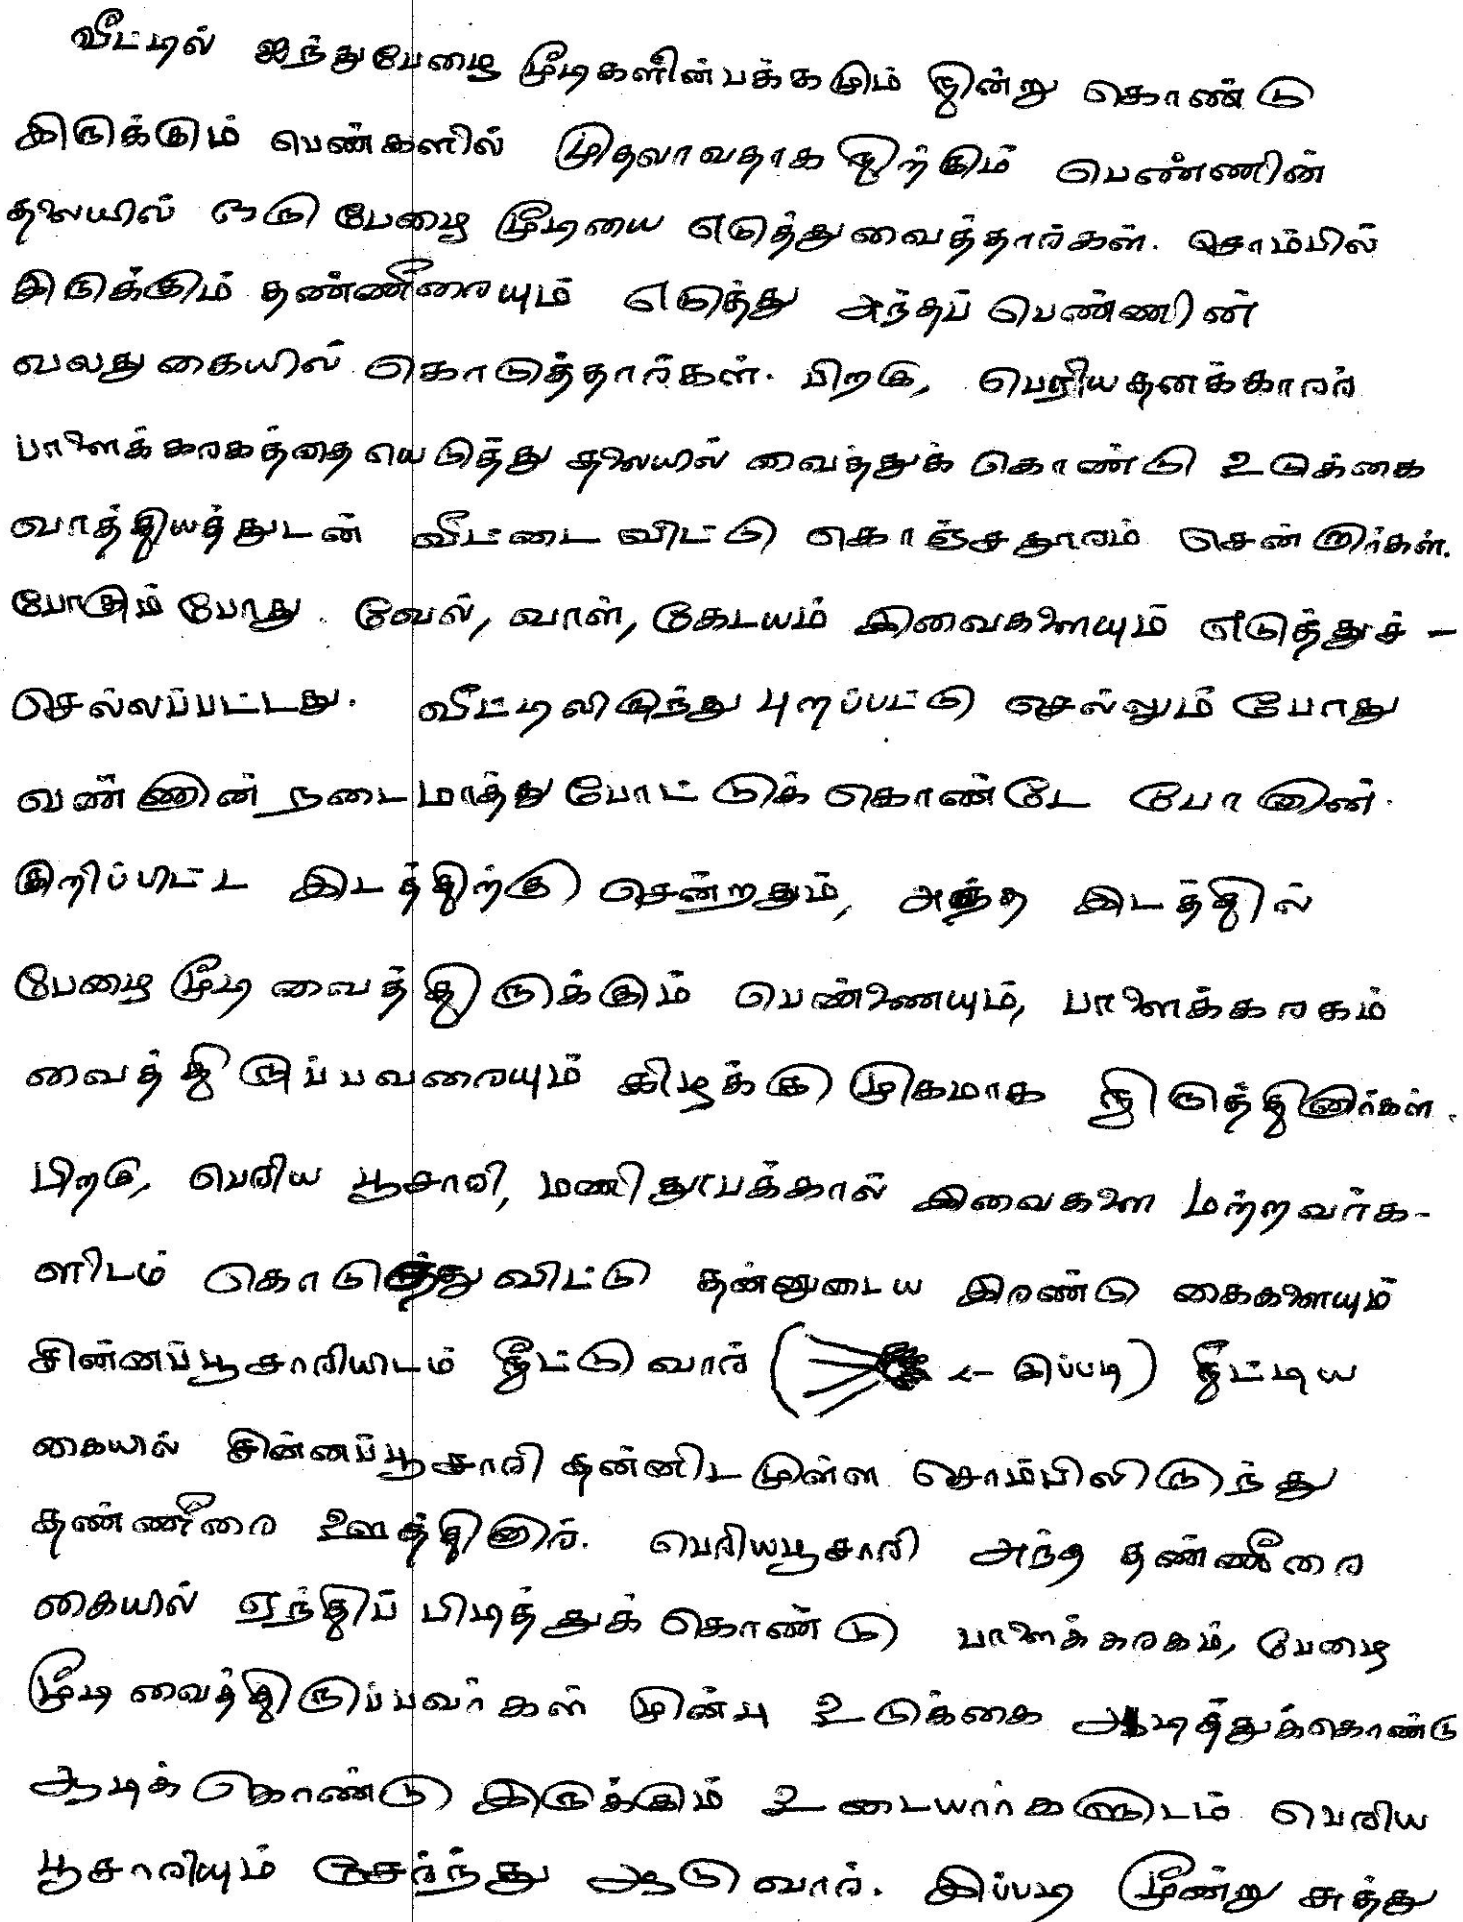 வீட்டில் ஐந்துபேழை மூடிகளின்பக்கமும் நின்று கொண்டு
இருக்கும் பெண்களில் முதலாவதாக நிற்கும் பெண்ணின்
தலையில் ஒரு பேழை மூடியை எடுத்துவைத்தார்கள். சொம்பில்
இருக்கும் தண்ணீரையும் எடுத்து அந்தப் பெண்ணின்
வலது கையில் கொடுத்தார்கள். பிறகு, பெரியதனக்காரர்
பாளைக்கரகத்தை யெடுத்து தலையில் வைத்துக் கொண்டு உடுக்கை
வாத்தியத்துடன் வீட்டை விட்டு கொஞ்சதூரம் சென்றார்கள்.
போகும் போது. வேல், வாள், கேடயம் இவைகளையும் எடுத்துச் -
செல்லப்பட்டது. வீட்டிலிருந்து புறப்பட்டு செல்லும் போது
வண்ணான் நடைமாத்து போட்டுக் கொண்டே போனான்.
குறிப்பிட்ட இடத்திற்கு சென்றதும், அந்த இடத்தில்
பேழை மூடி வைத்திருக்கும் பெண்ணையும், பாளைக்கரகம்
வைத்திருப்பவரையும் கிழக்கு முகமாக நிருத்தினார்கள்.
பிறகு, பெரிய பூசாரி, மணி தூபக்கால் இவைகளை மற்றவர்க-
ளிடம் கொடுத்து விட்டு தன்னுடைய இரண்டு கைகளையும்
சின்னப்பூசாரியிடம் நீட்டுவார் ( ← இப்படி) நீட்டிய
கையில் சின்னப்பூசாரி தன்னிடமுள்ள சொம்பிலிருந்து
தண்ணீரை ஊத்தினார். பெரியபூசாரி அந்த தண்ணீரை
கையில் ஏந்திப் பிடித்துக் கொண்டு பாளைக்கரகம், பேழை
மூடி வைத்திருப்பவர்கள் முன்பு உடுக்கை அடித்துக்கொண்டு
ஆடிக் கொண்டு இருக்கும் உடையார்களுடம் பெரிய
பூசாரியும் சேர்ந்து ஆடுவார். இப்படி மூன்று சுத்து